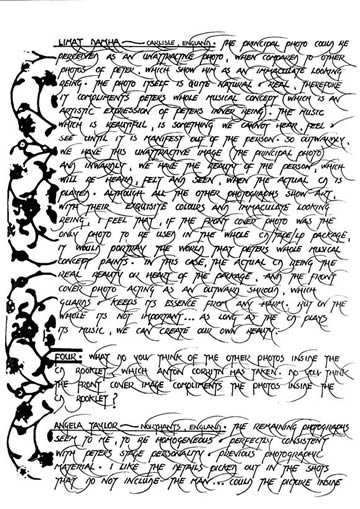 LIMAT DAMHA — CARLISLE, ENGLAND: THE PRINCIPAL PHOTO COULD BE
PERCEIVED AS AN UNATTRACTIVE PHOTO, WHEN COMPARED TO OTHER
PHOTOS OF PETER, WHICH SHOW HIM AS AN IMMACULATE LOOKING
BEING. THE PHOTO ITSELF IS QUITE NATURAL & REAL, THEREFORE
IT COMPLIMENTS PETERS WHOLE MUSICAL CONCEPT (WHICH IS AN
ARTISTIC EXPRESSION OF PETERS INNER BEING). THE MUSIC
WHICH IS BEAUTIFUL, IS SOMETHING WE CANNOT HEAR, FEEL &
SEE UNTIL IT IS MANIFEST OUT OF THE PERSON. SO OUTWARDLY,
WE HAVE THIS UNATTRACTIVE IMAGE (THE PRINCIPAL PHOTO)
AND INWARDLY, WE HAVE THE BEAUTY OF THE PERSON, WHICH
WILL BE HEARD, FELT AND SEEN, WHEN THE ACTUAL CD IS
PLAYED. ALTHOUGH ALL THE OTHER PHOTOGRAPHS SHOW ART
WITH THEIR EXQUISITE COLOURS AND IMMACULATE LOOKING
BEING, I FEEL THAT, IF THE FRONT COVER PHOTO WAS THE
ONLY PHOTO TO BE USED IN THE WHOLE CD/TAPE/LP PACKAGE,
IT WOULD PORTRAY THE WORLD THAT PETERS WHOLE MUSICAL
CONCEPT PAINTS. IN THIS CASE, THE ACTUAL CD BEING THE
REAL BEAUTY OR HEART OF THE PACKAGE, AND THE FRONT
COVER PHOTO ACTING AS AN OUTWARD SHROUD, WHICH
GUARDS & KEEPS ITS ESSENCE FROM ANY HARM. BUT ON THE
WHOLE ITS NOT IMPORTANT... AS LONG AS THE CD PLAYS
ITS MUSIC, WE CAN CREATE OUR OWN BEAUTY.
FOUR: WHAT DO YOU THINK OF THE OTHER PHOTOS INSIDE THE
CD BOOKLET, WHICH ANTON CORBIJN HAS TAKEN. DO YOU THINK
THE FRONT COVER IMAGE COMPLIMENTS THE PHOTOS INSIDE THE
CD BOOKLET?
ANGELA TAYLOR — NORTHANTS, ENGLAND: THE REMAINING PHOTOGRAPHS
SEEM TO ME, TO BE HOMOGENEOUS & PERFECTLY CONSISTENT
WITH PETERS STAGE PERSONALITY & PREVIOUS PHOTOGRAPHIC
MATERIAL. I LIKE THE DETAILS PICKED OUT IN THE SHOTS
THAT DO NOT INCLUDE THE MAN... COULD THE PICTURE INSIDE